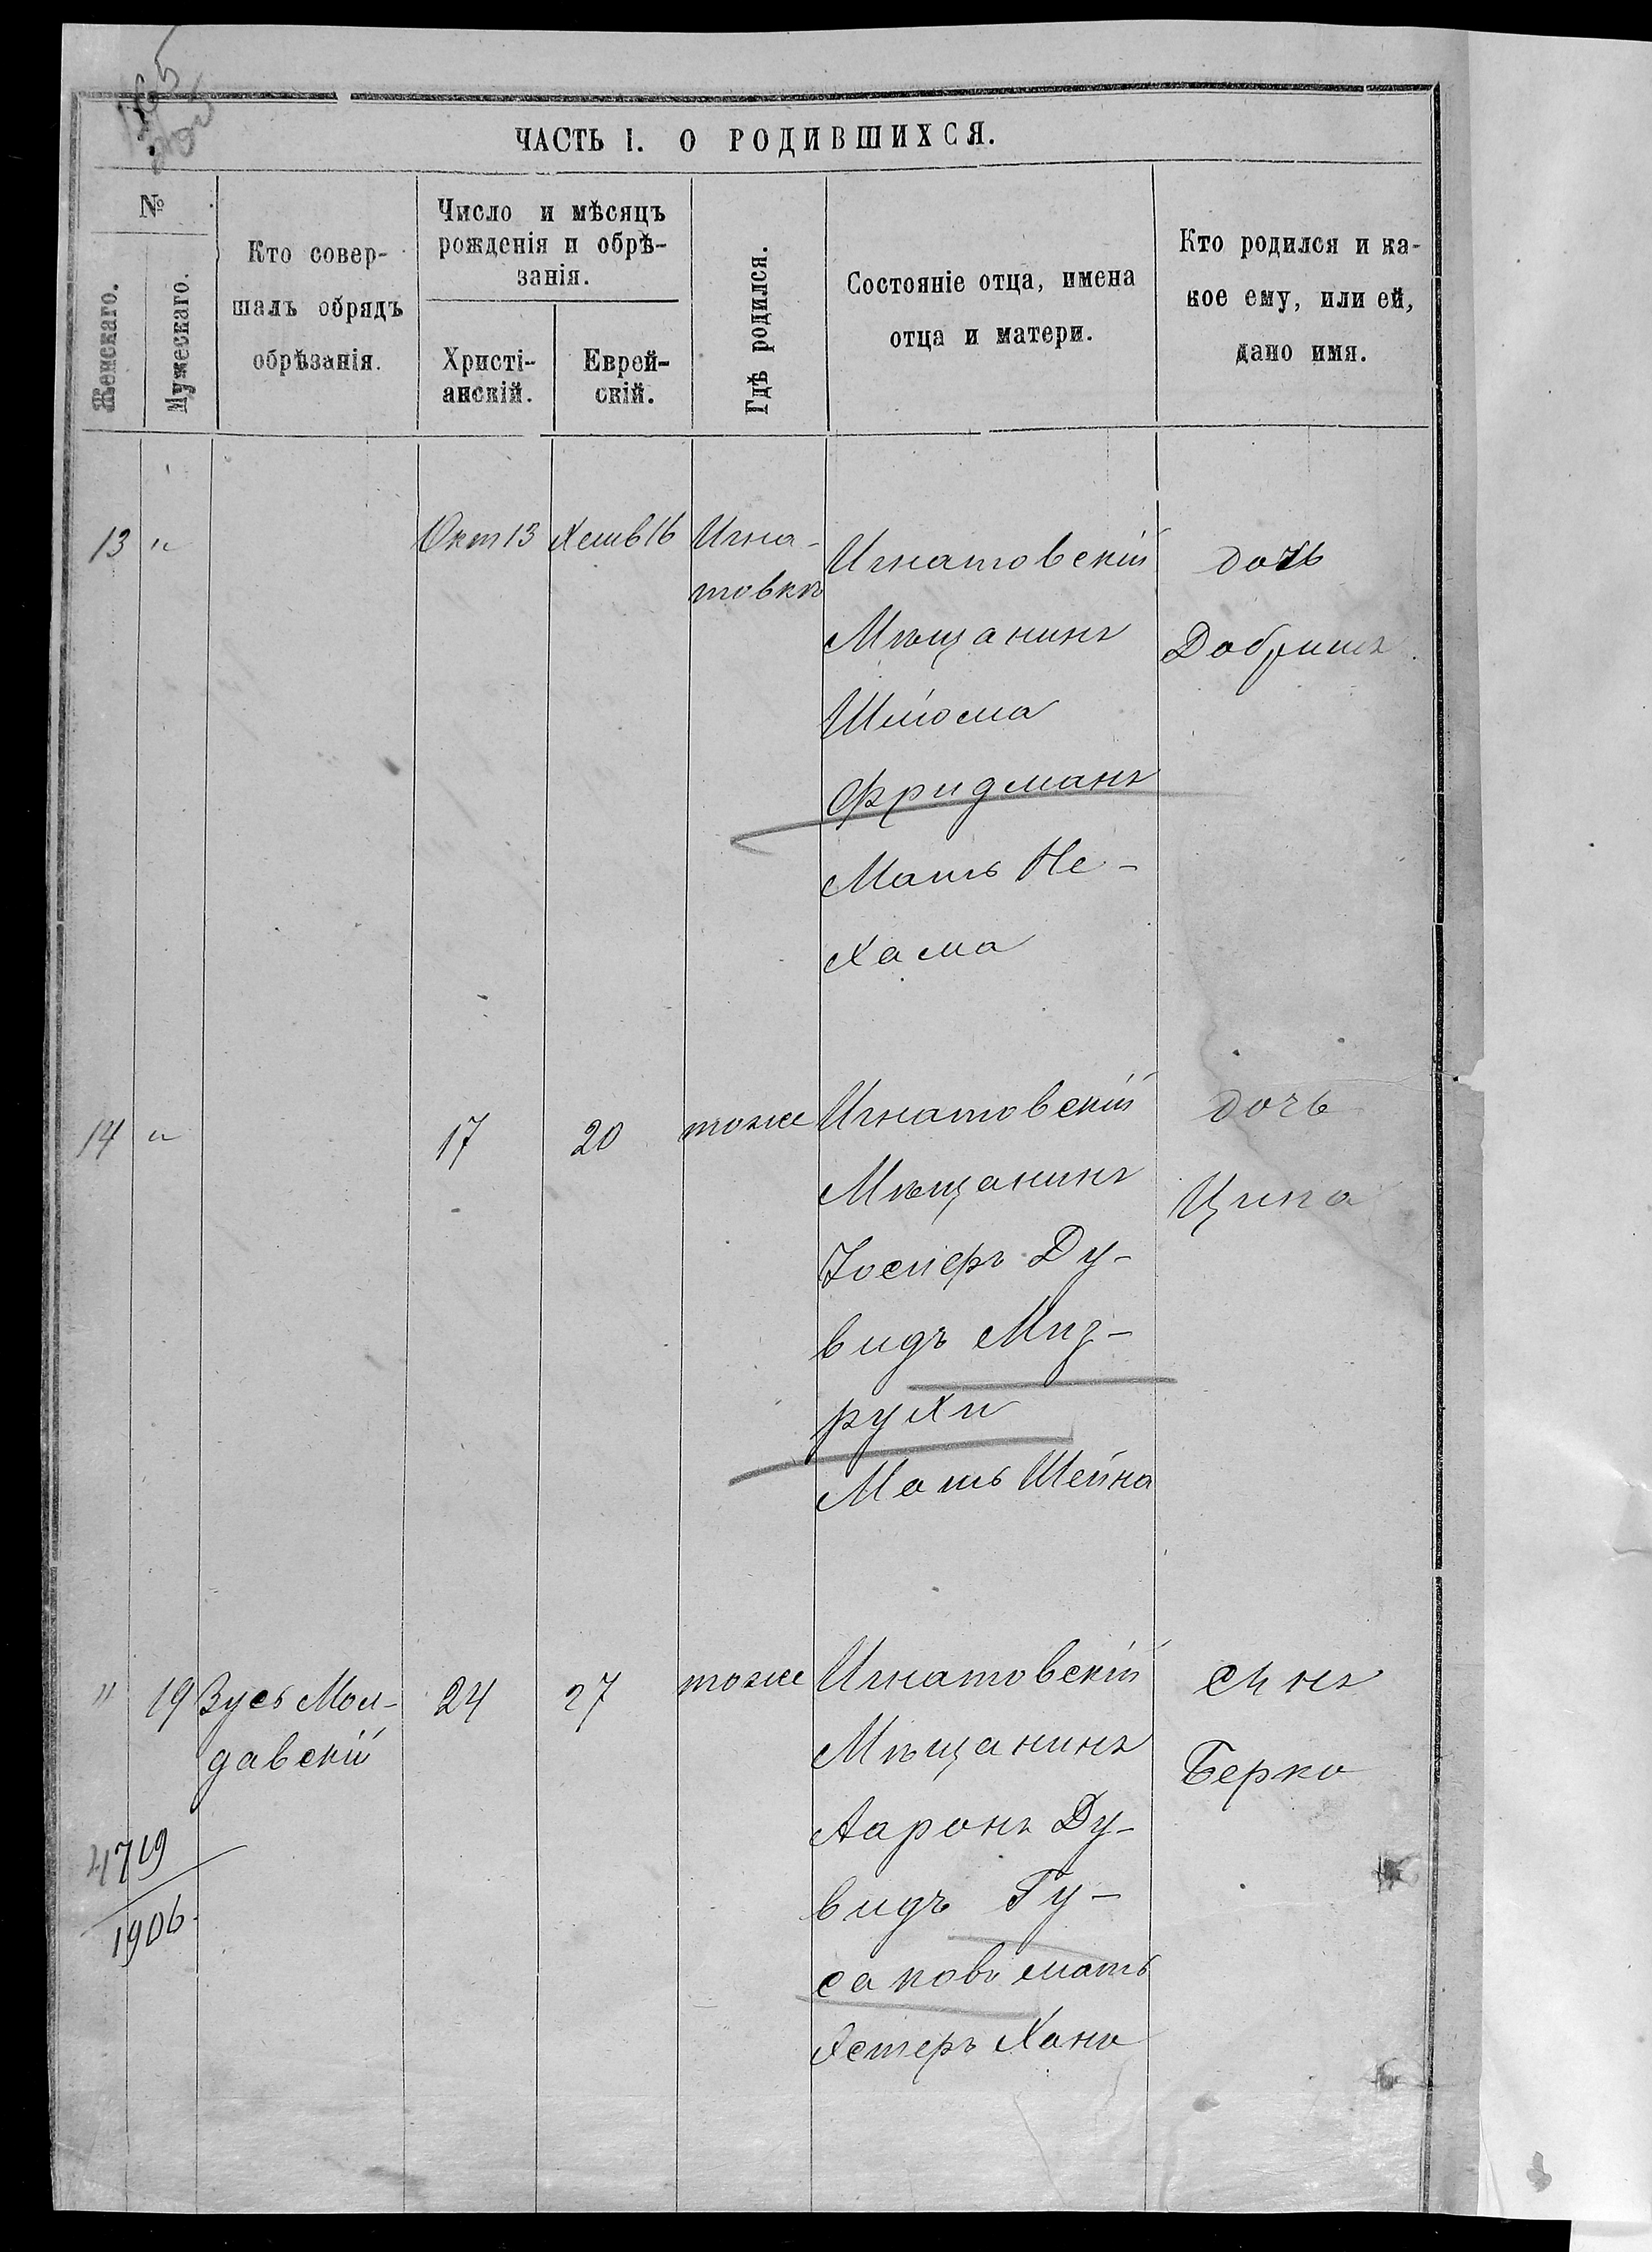 ЧАСТЬ I. О РОДИВШИХСЯ.
№
Женскаго.
Мужескаго.
Кто совер-
шалъ обрядъ
обрѣзанія.
Число и мѣсяцъ
рожденія и обрѣ-
занія.
Христі-
анскій.
Еврей-
скій.
Гдѣ родился.
Состояніе отца, имена
отца и матери.
Кто родился и ка-
кое ему, или ей,
дано имя.
13 " Окт 13 Хешв 16 Игна-
товкѣ
Игнатовскій
Мѣщанинъ
Шліома
Фридманъ
Мать Не-
хама
дочь
Добришъ
14 " 17 20 тоже
Игнатовскій
Мѣщанинъ
Іосиеръ Ду-
видъ Миз-
рухи
Мать Шейна
дочь
Ципа
" 19 Зусь Мол-
давскій
24 27 тоже
Игнатовскій
Мѣщанинъ
Ааронъ Ду-
видъ Гу-
саковъ мать
Эстеръ Хана
сынъ
Берко
4719
1906